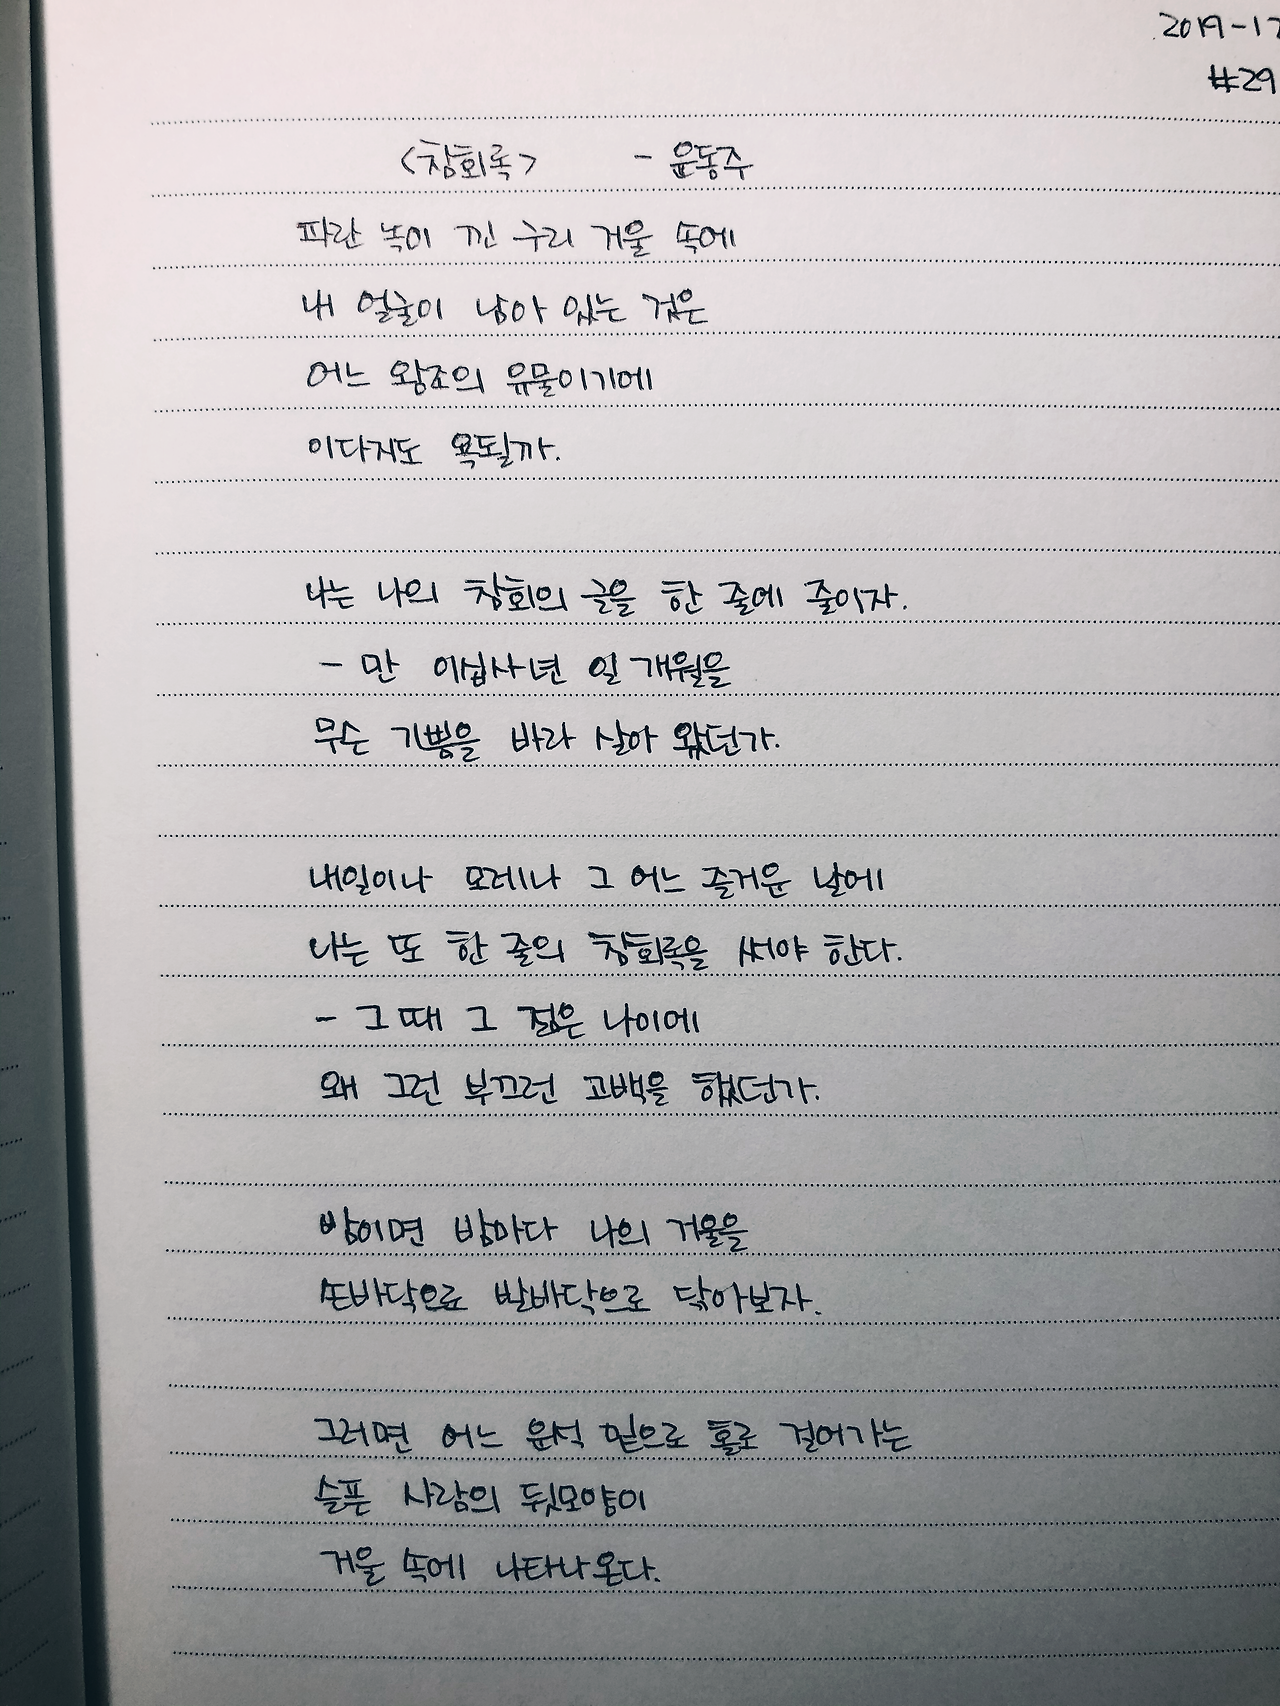 2019-17
#29
<참회록> - 윤동주
파란 녹이 낀 구리 거울 속에
내 얼굴이 남아 있는 것은
어느 왕조의 유물이기에
이다지도 욕될까.
나는 나의 참회의 글을 한 줄에 줄이자.
- 만 이십사년 일 개월을
무슨 기쁨을 바라 살아 왔던가.
내일이나 모레나 그 어느 즐거운 날에
나는 또 한 줄의 참회록을 써야 한다.
- 그때 그 젊은 나이에
왜 그런 부끄런 고백을 했던가.
밤이면 밤마다 나의 거울을
손바닥으로 발바닥으로 닦아보자.
그러면 어느 운석 밑으로 홀로 걸어가는
슬픈 사람의 뒷모양이
거울 속에 나타나온다.